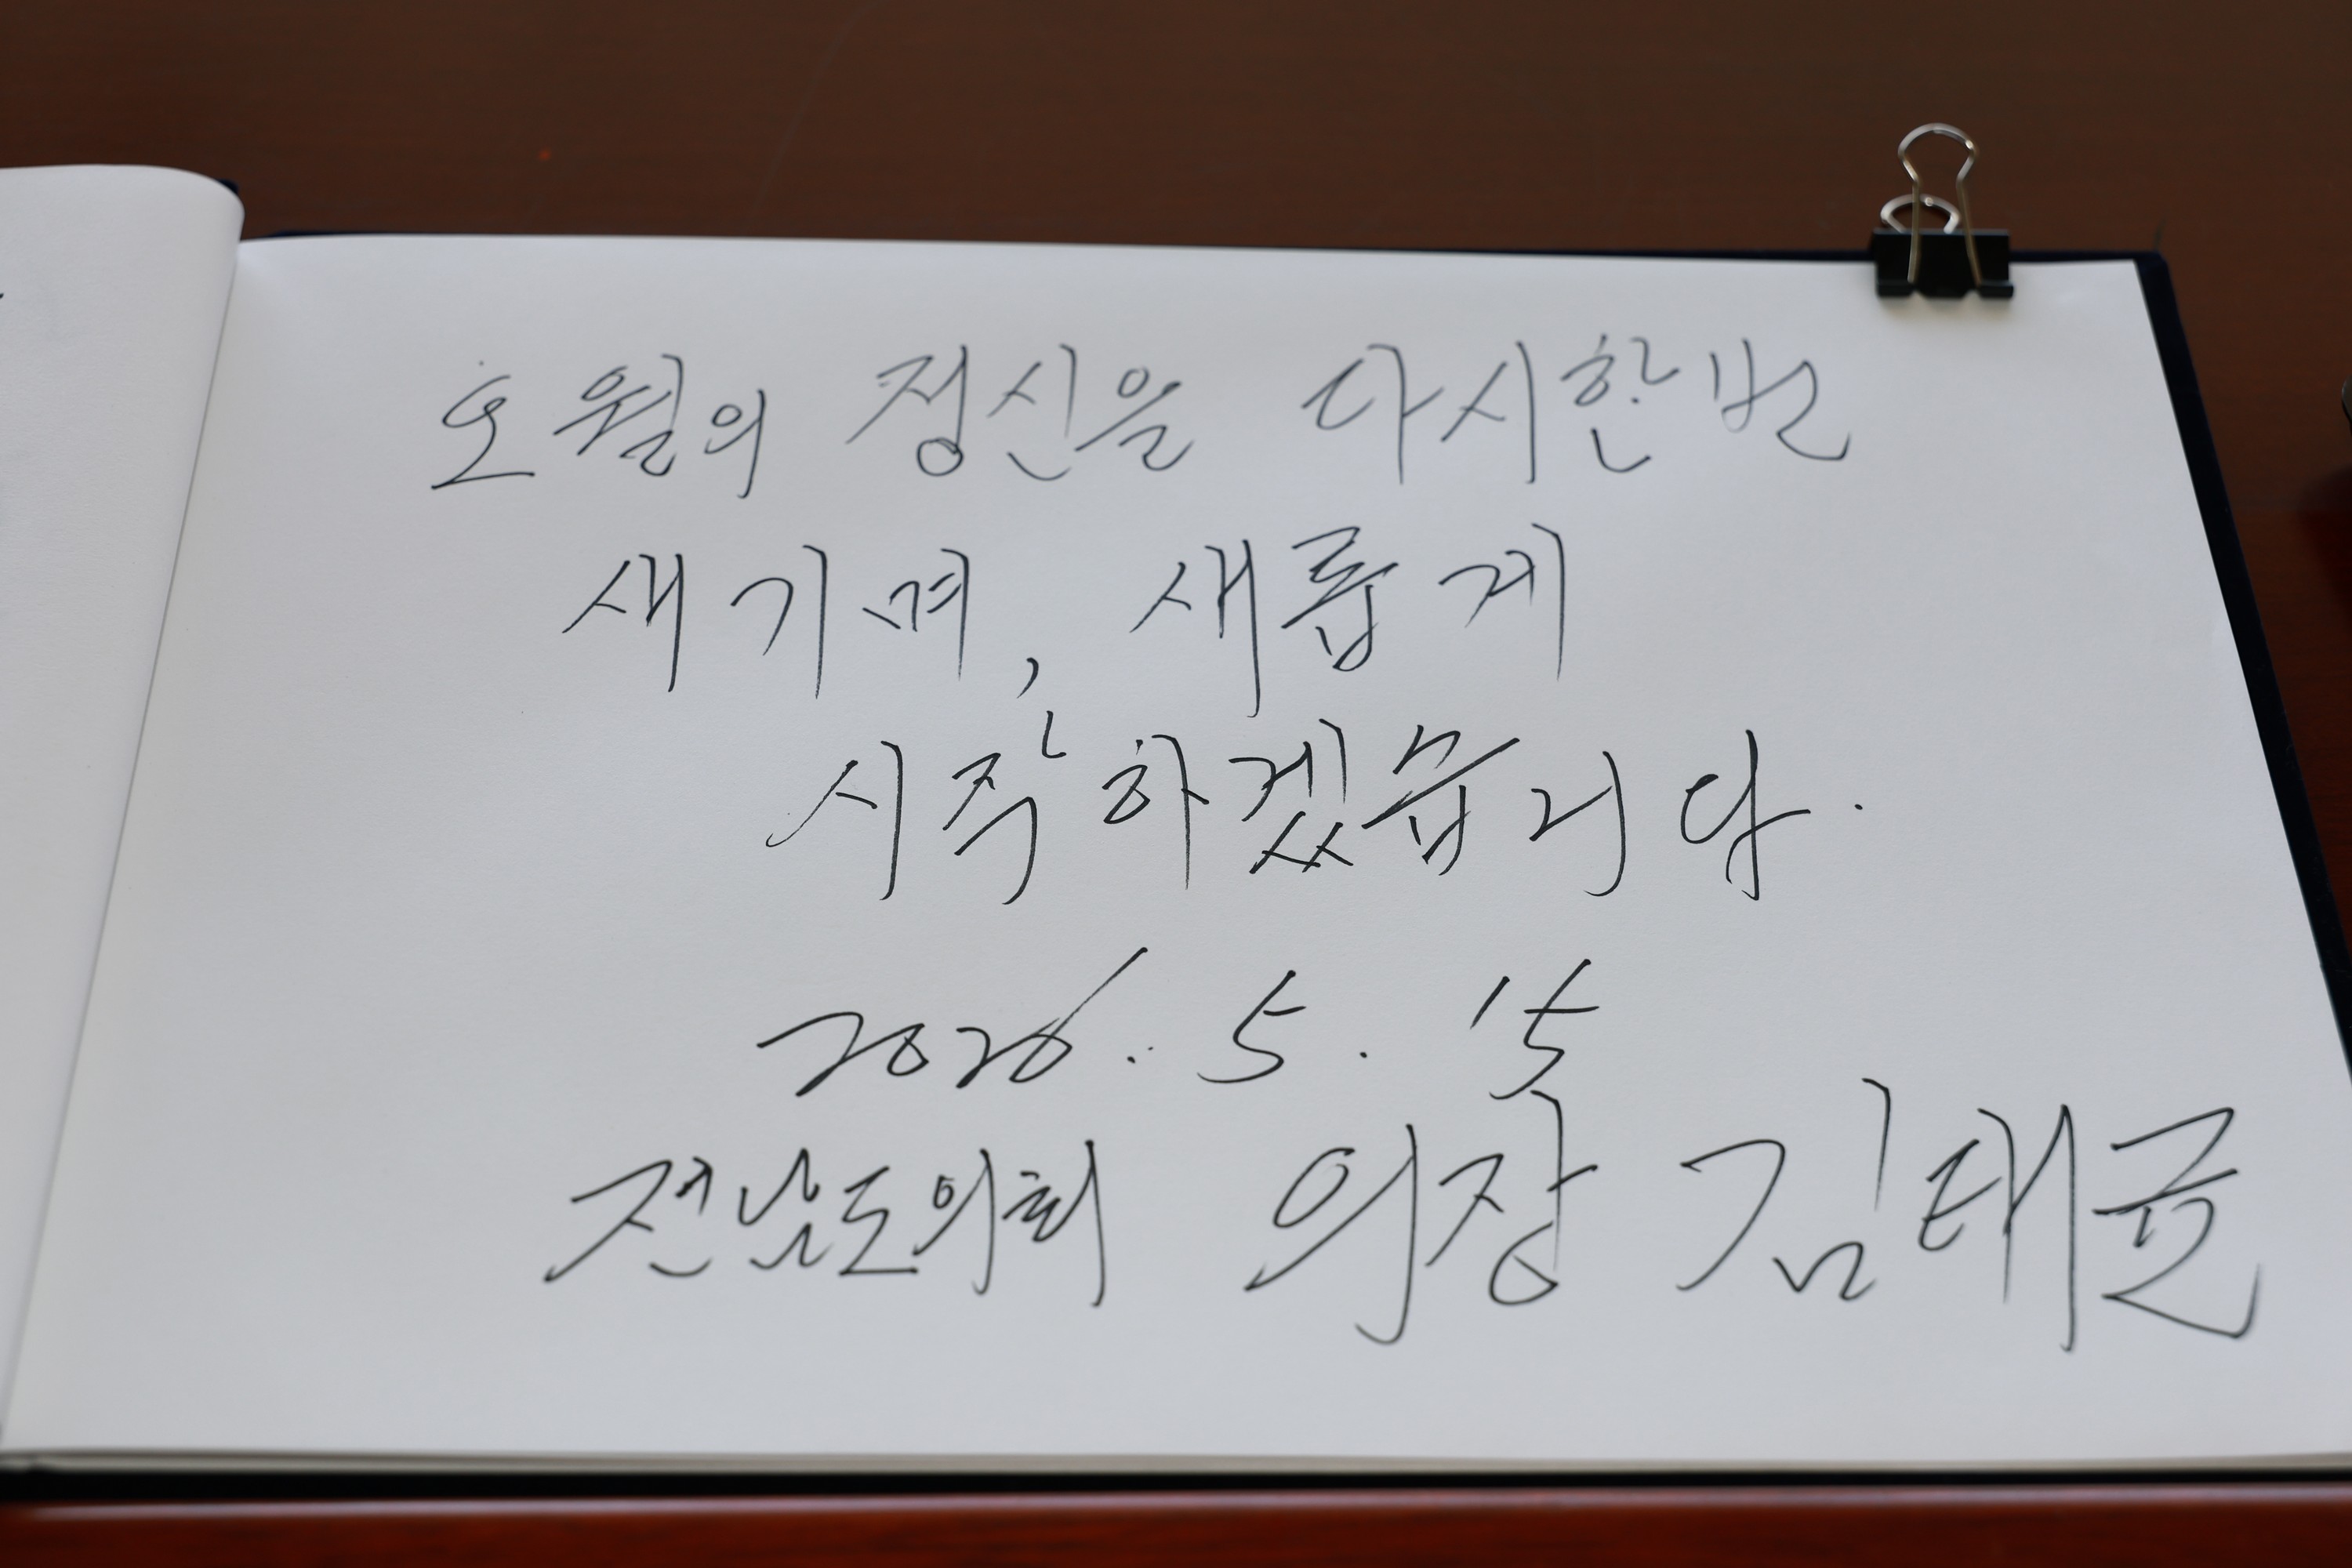 오월의 정신을 다시한번
새기며, 새롭게
시작하겠습니다.
2026. 5. 15
전남도의회 의장 김태균